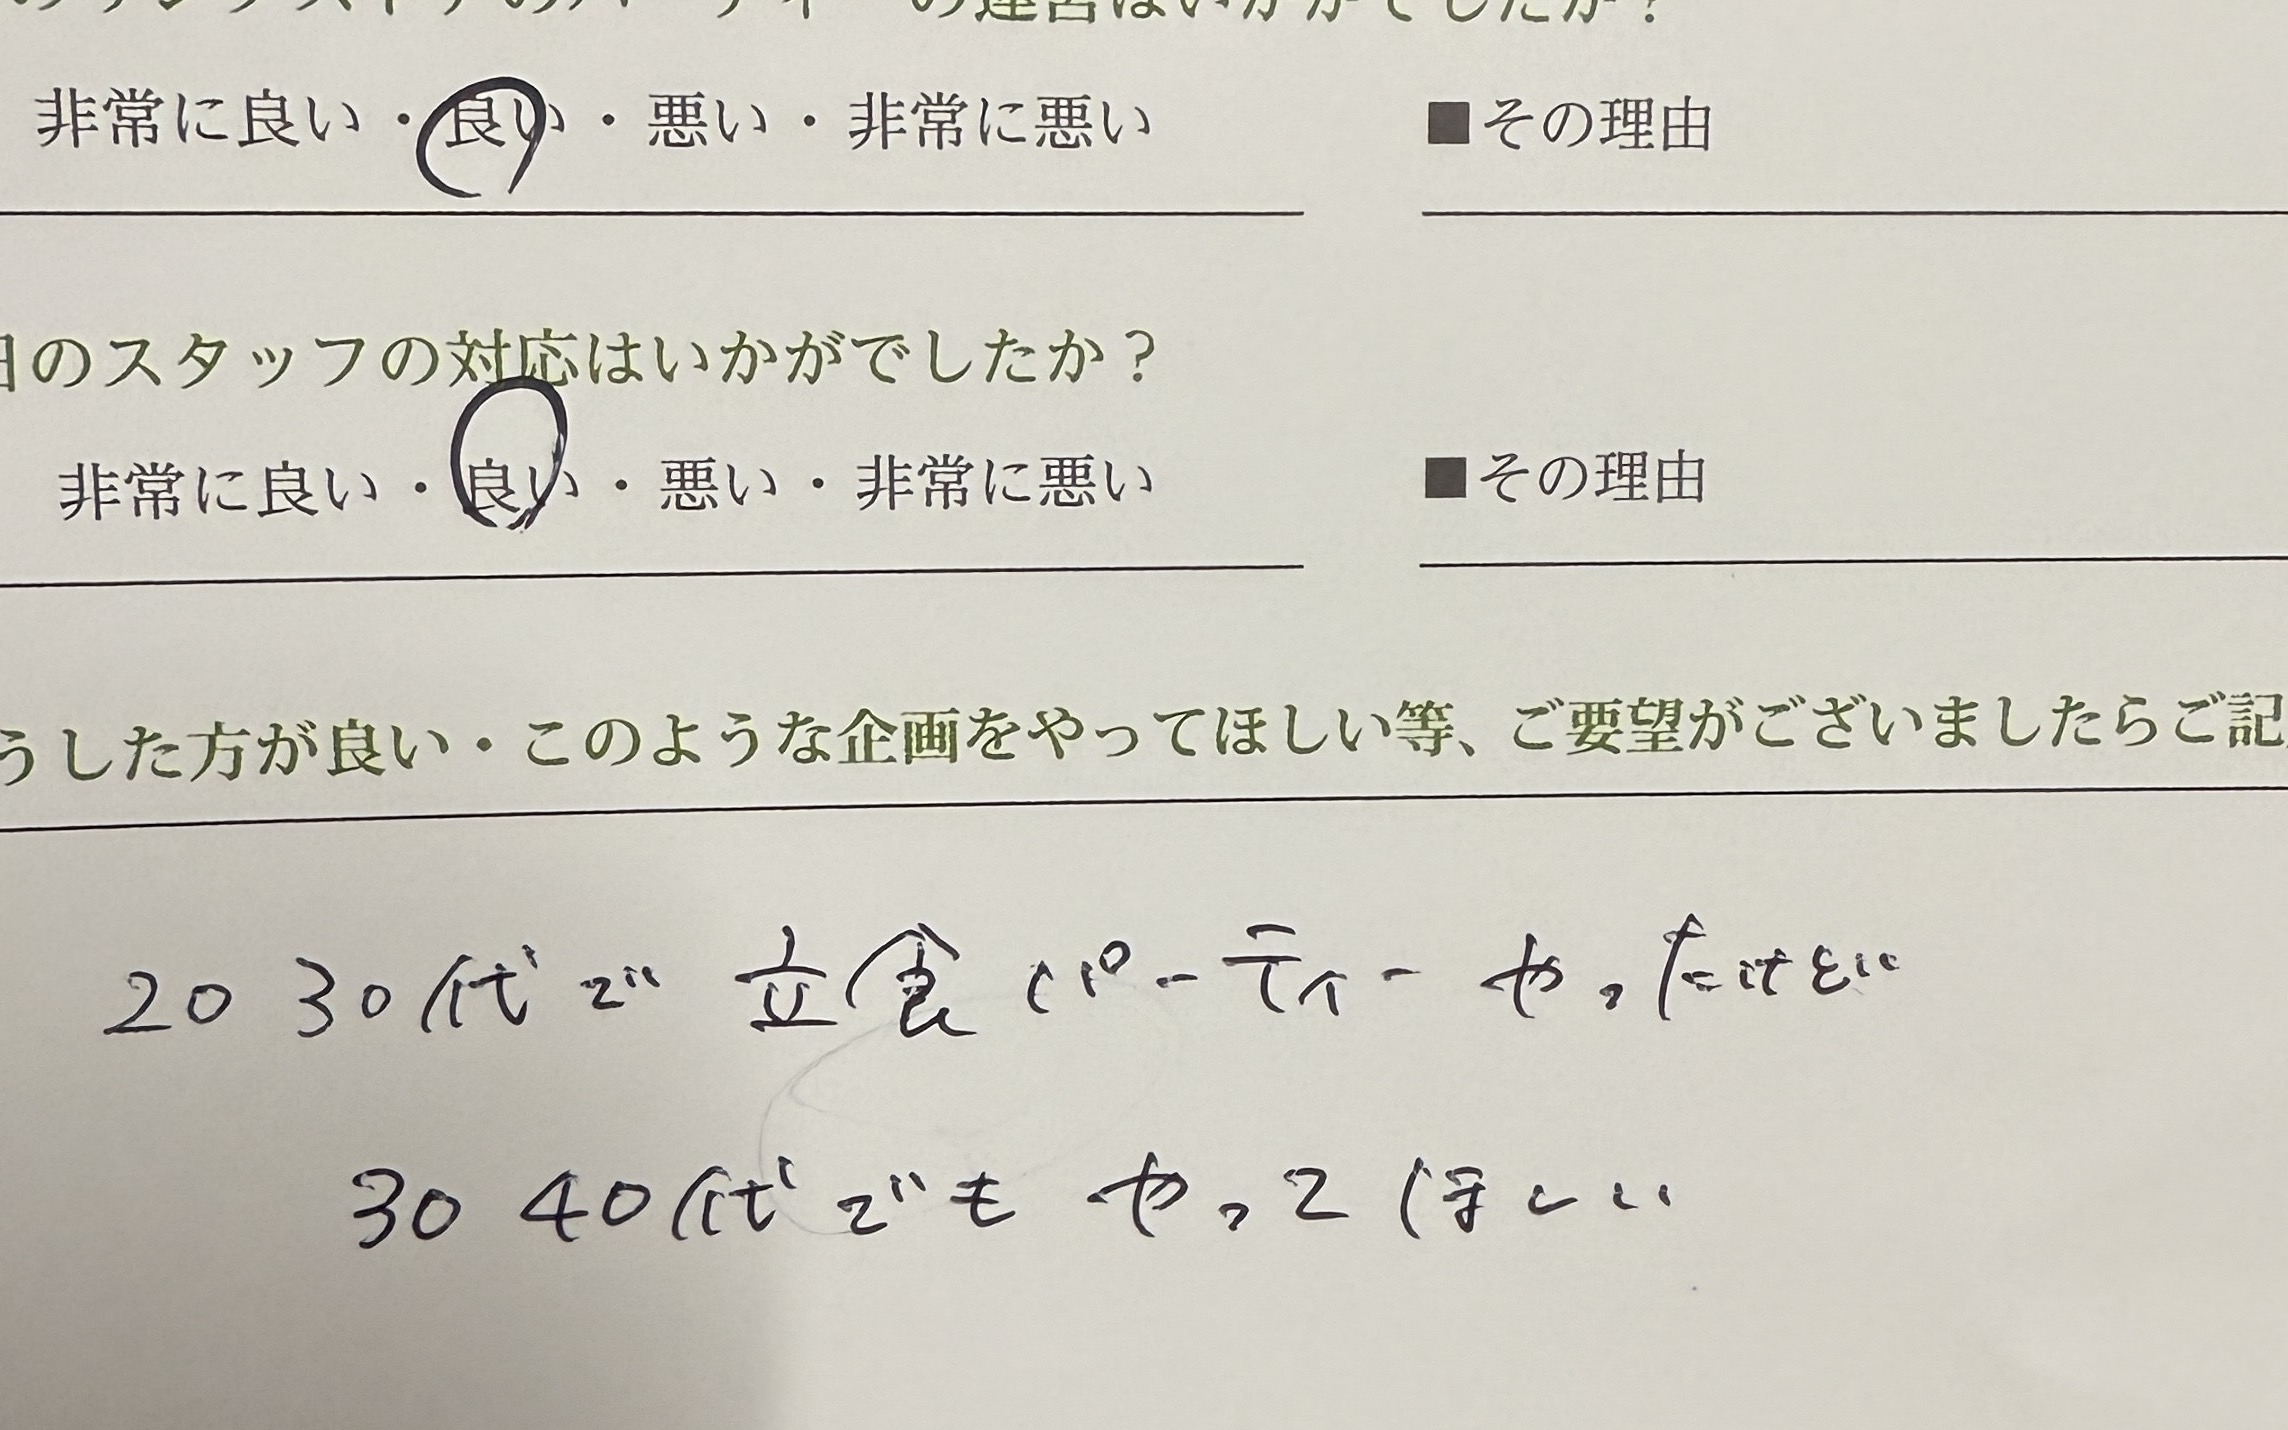 の運営はいかがでしたか？
非常に良い・良い・悪い・非常に悪い ■その理由
日のスタッフの対応はいかがでしたか？
非常に良い・良い・悪い・非常に悪い ■その理由
うした方が良い・このような企画をやってほしい等、ご要望がございましたらご記
20 30代で 立食パーティーやったけど
30 40代でも やってほしい